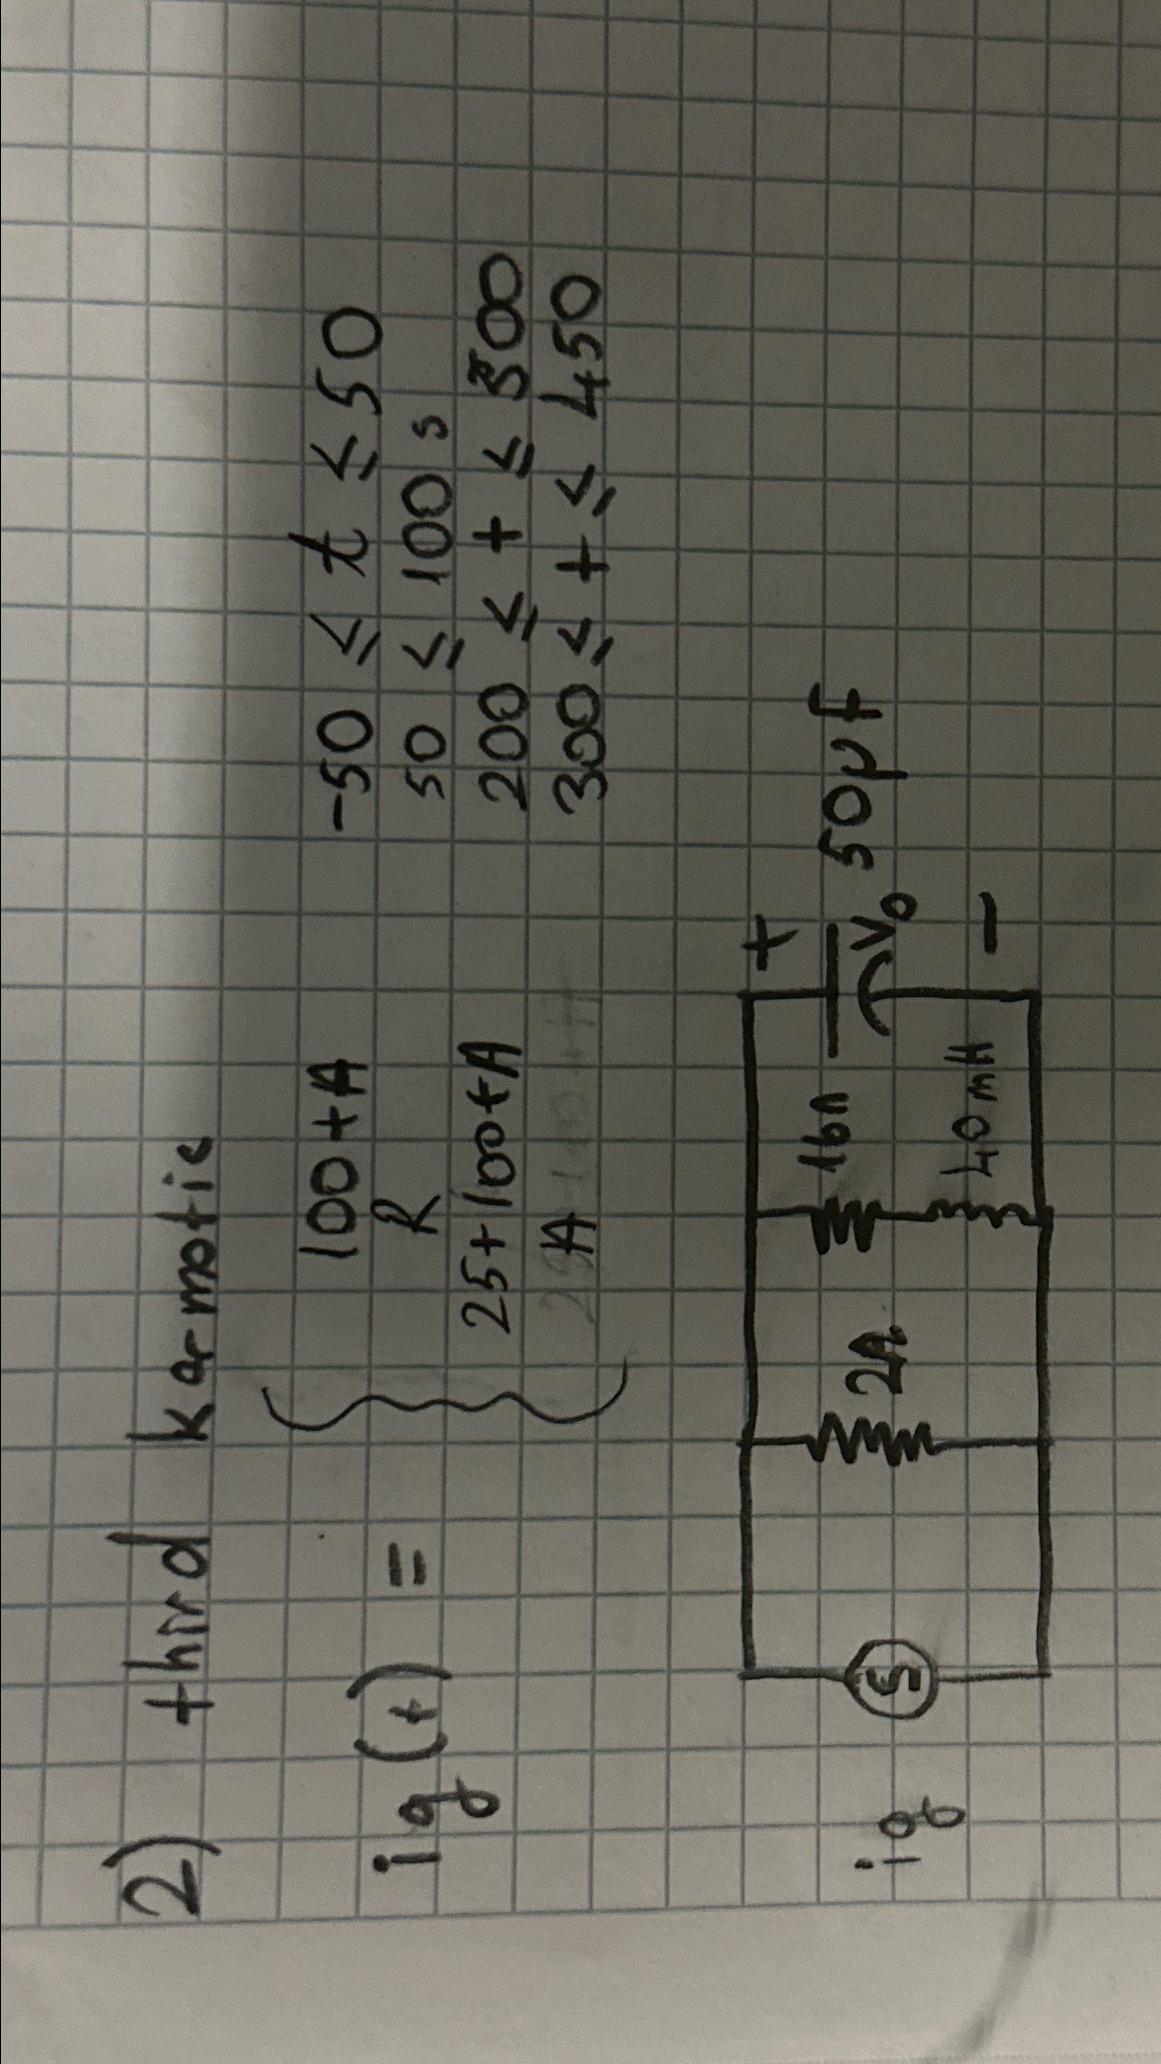 2) third karmotic
ig(t) =
100tA -50 ≤ t ≤ 50
R 50 ≤ 100 s
25+100tA 200 ≤ t ≤ 300
A 300 ≤ t ≤ 450
ig
2Ω
16Ω
40mH
+
Vo
-
50µf